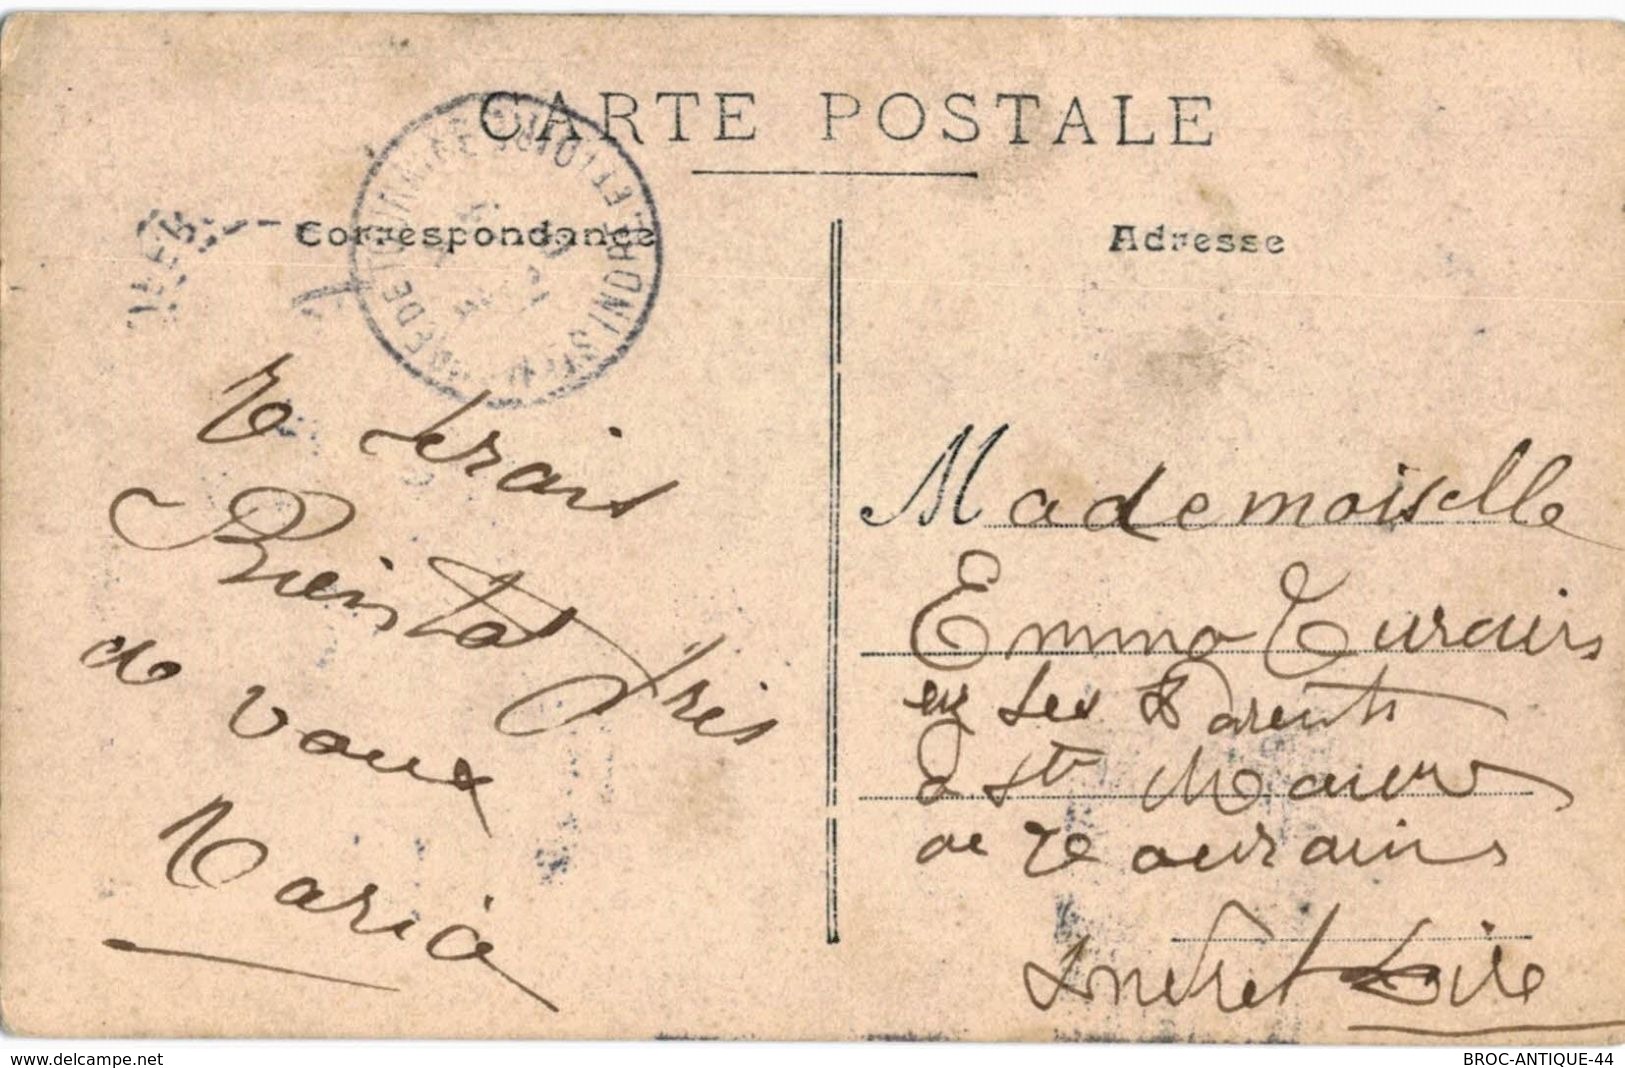 CARTE POSTALE
Correspondance
Adresse
INDRE ET LOIRE
serais
Bientot pres
de vous
Maria
Mademoiselle
Emma
ses Parents
a Ste Maur
de Touraine
Indre et Loire
www.delcampe.net
BROC-ANTIQUE-44